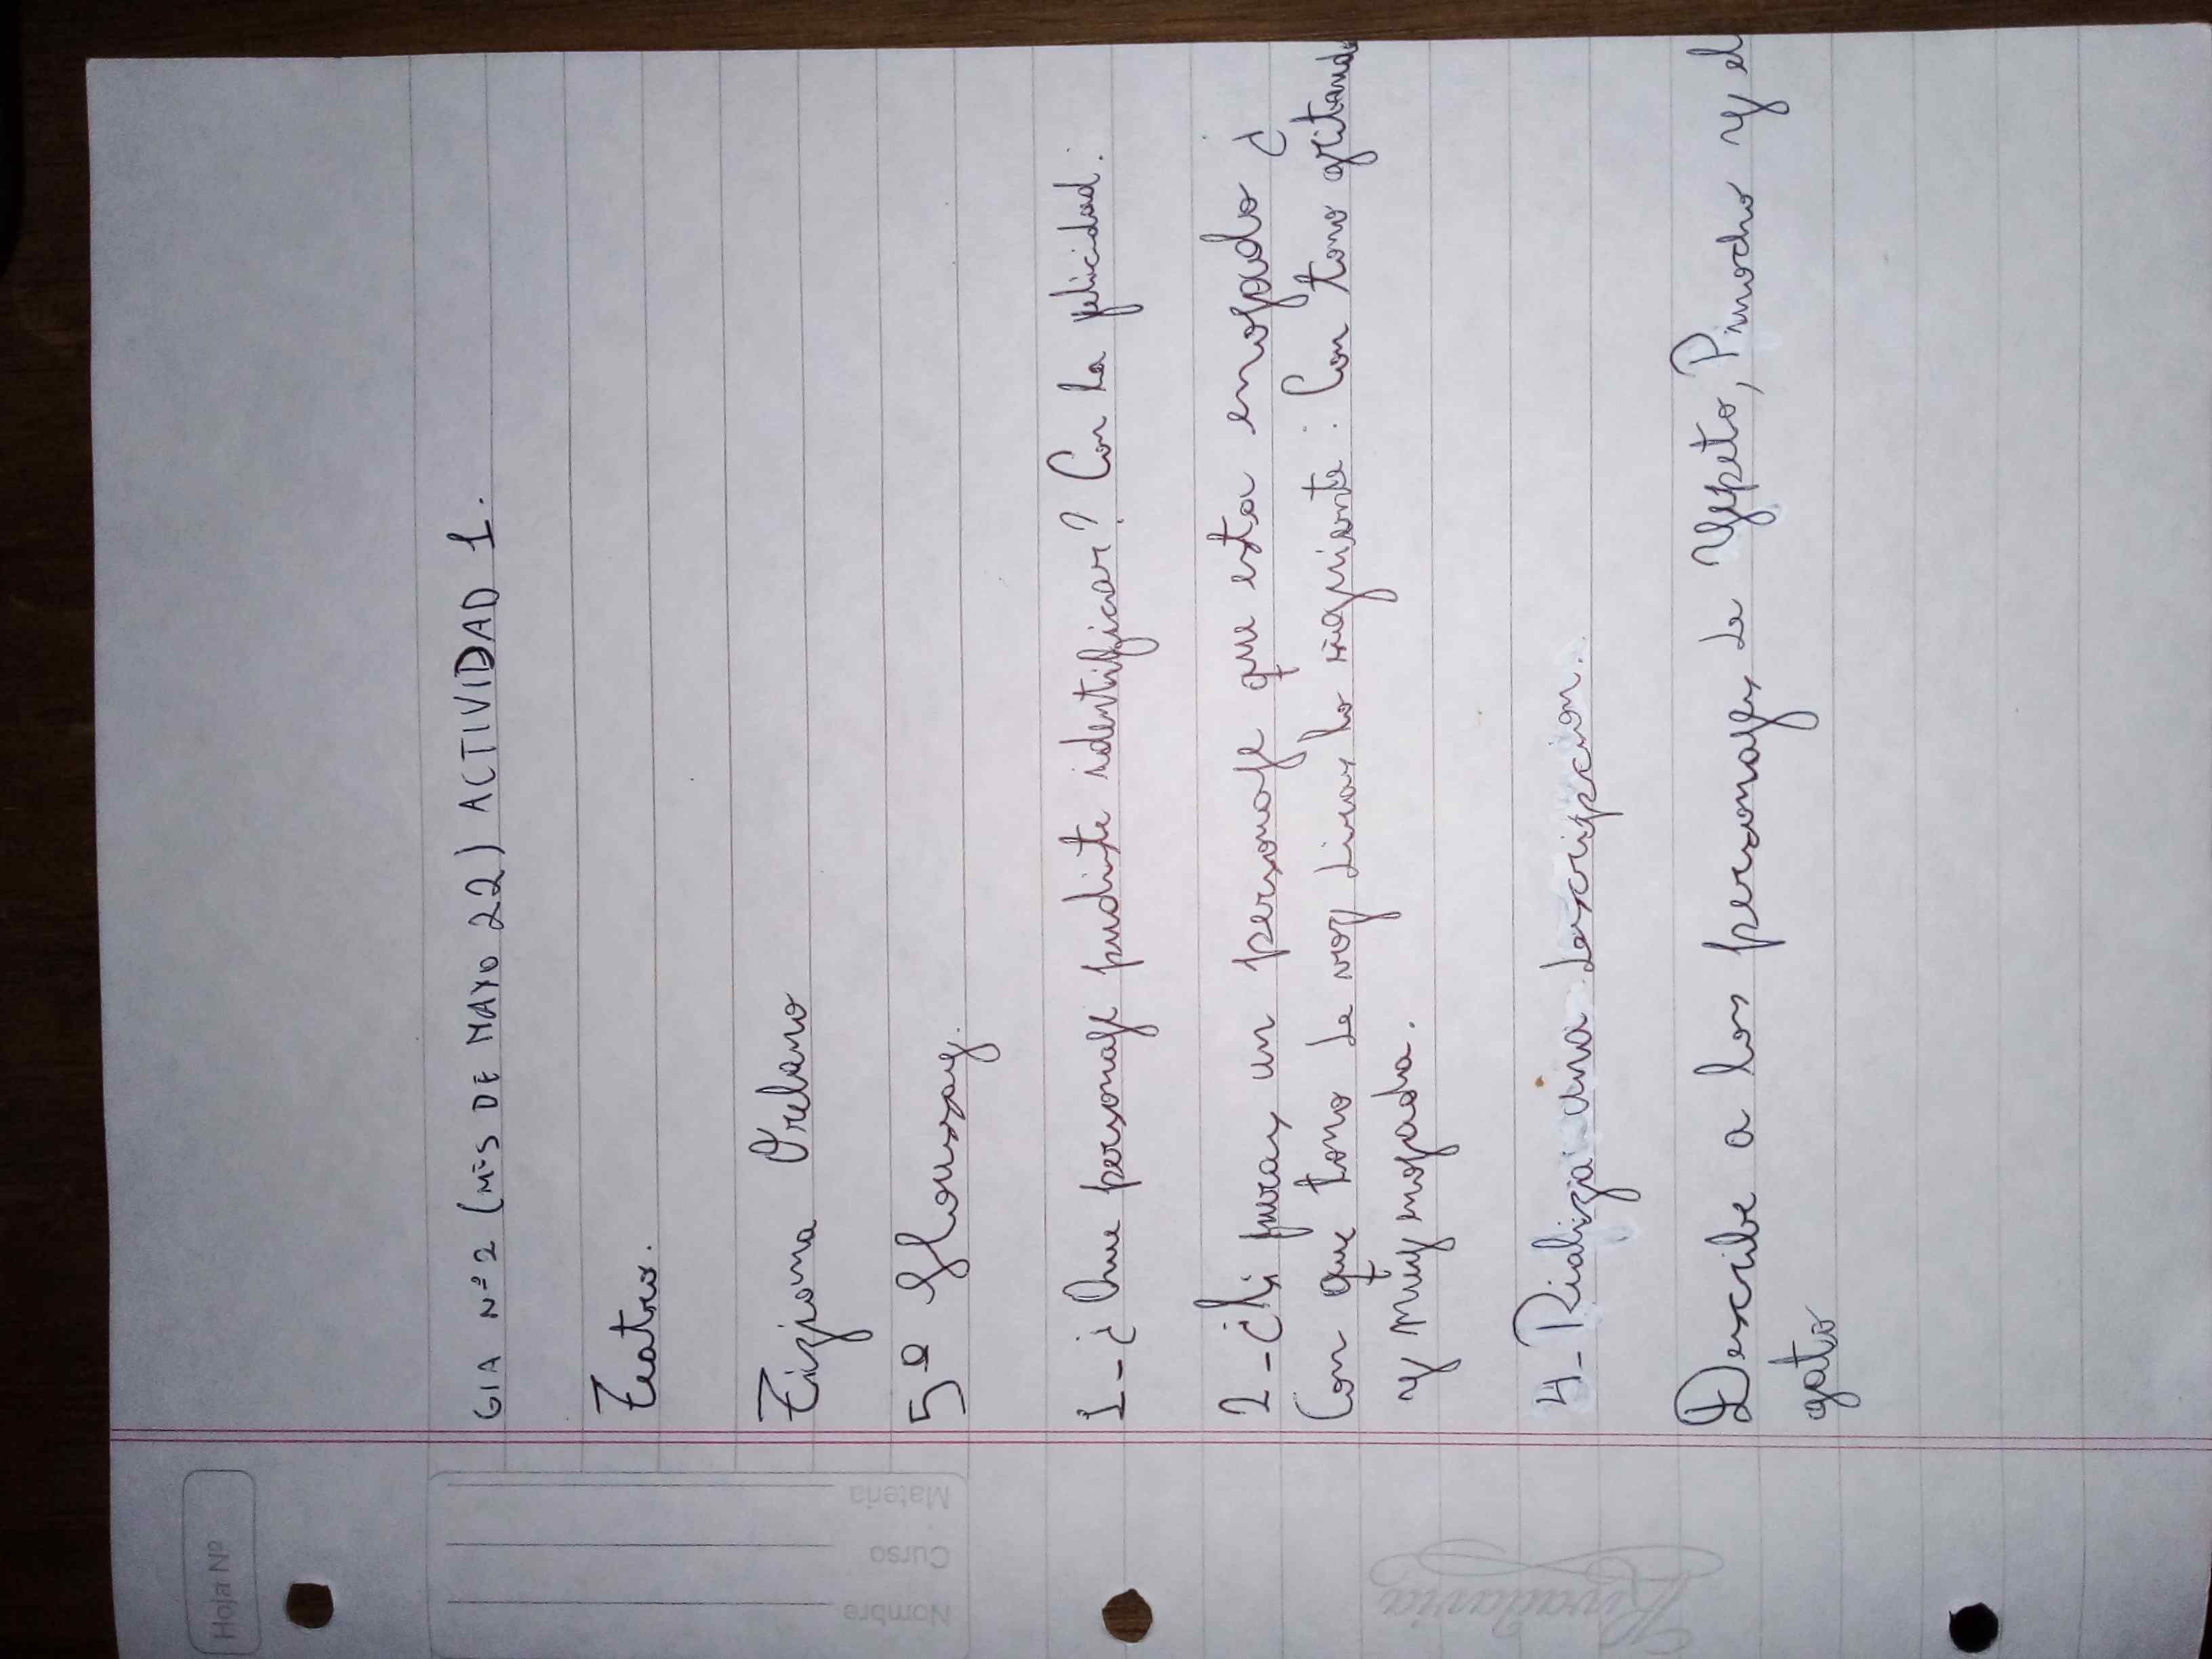 Hoja Nº
Nombre
Curso
Materia
Rivadavia
GIA Nº 2 (MES DE MAYO 22) ACTIVIDAD 1.
Teatro.
Tiziana Orelano
5º Houssay.
1-¿Que personaje pudiste identificar? Con la felicidad.
2-¿Si fueras un personaje que esta enojado ¿
Con que tono de voz dirias lo siguiente: Con tono gritando
y muy enojada.
4-Realiza una descripcion.
Describe a los personajes de Yepeto, Pinocho y el
gato